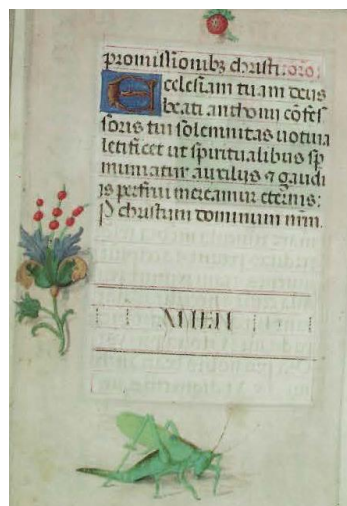 promissionibꝫ christi: oro:
Ecclesiam tuam deus
beati anthonij cõfes
soris tui solemnitas uotiua
letificet ut spiritualibus sp̃
muniatur auxilijs ⁊ gaudi
is perfrui mereamur eternis:
P christum dominum nr̃m.
AMEN